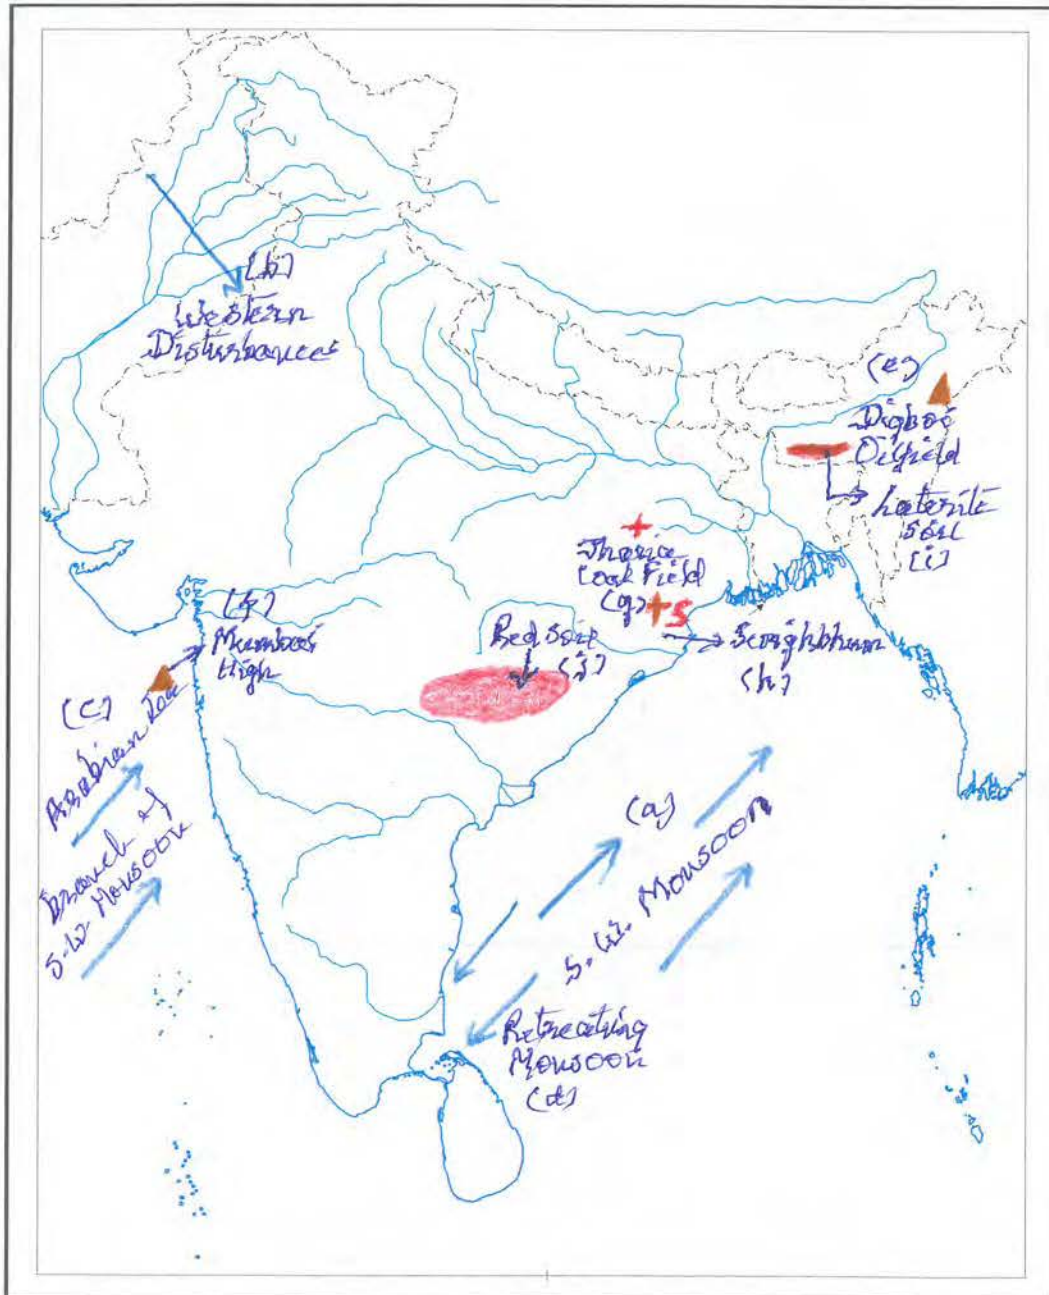 (b)
Western
Disturbances
(e)
Digboi
Oilfield
Laterite
Soil
(i)
Jharia
Coal Field
(g)
S
Singhbhum
(h)
Red Soil
(j)
Mumbai
High
(c)
Arabian Sea
Branch of
S.W Monsoon
(a)
S.W. Monsoon
Retreating
Monsoon
(d)